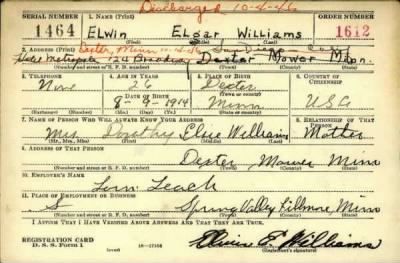 Discharged 10-4-46
SERIAL NUMBER 1. NAME (Print) ORDER NUMBER
1464 ELwin ELgar Williams 1612
(First) (Middle) (Last)
2. ADDRESS (Print) Dexter, Minn 10-4-46
124 Broadway Dexter Mower Minn.
(Number and street or R. F. D. number) (Town) (County) (State)
3. TELEPHONE 4. AGE IN YEARS 5. PLACE OF BIRTH 6. COUNTRY OF CITIZENSHIP
26 Dexter
DATE OF BIRTH (Town or county)
8-9-1914 Minn USA
(Mo.) (Day) (Yr.) (State or country)
7. NAME OF PERSON WHO WILL ALWAYS KNOW YOUR ADDRESS 8. RELATIONSHIP OF THAT PERSON
Mrs Dorothy Elsie Williams Mother
(Mr., Mrs., Miss) (First) (Middle) (Last)
9. ADDRESS OF THAT PERSON
Dexter, Mower Minn
(Number and street or R. F. D. number) (Town) (County) (State)
10. EMPLOYER'S NAME
Leach
11. PLACE OF EMPLOYMENT OR BUSINESS
Spring Valley Fillmore, Minn
(Number and street or R. F. D. number) (Town) (County) (State)
I AFFIRM THAT I HAVE VERIFIED ABOVE ANSWERS AND THAT THEY ARE TRUE.
REGISTRATION CARD
D. S. S. Form 1 16-17105 Elwin E. Williams
(Registrant's signature)